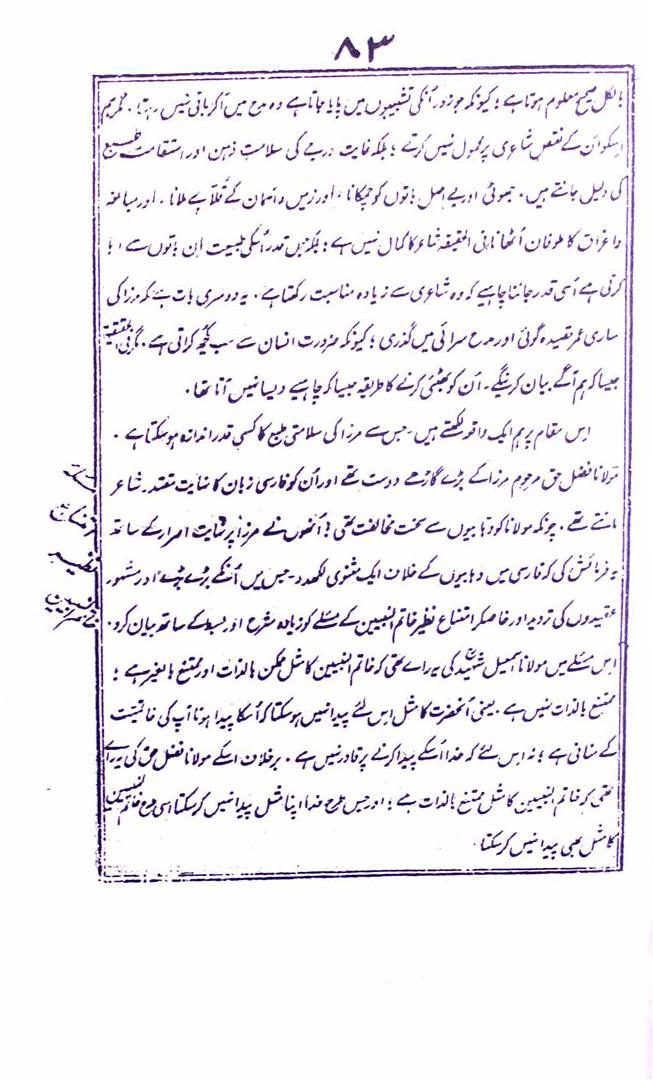 ۸۳
بالکل صحیح معلوم ہوتا ہے؛ کیونکہ جو زور اُنکی تشبیبوں میں پایا جاتا ہے وہ مدح میں آکر باقی نہیں رہتا۔ مگر ہم
اسکو اُن کے نقصِ شاعری پر محمول نہیں کرتے؛ بلکہ غایت درجے کی سلامتِ ذہن اور استقامتِ طبع
کی دلیل جانتے ہیں۔ جھوٹی اور بے اصل باتوں کو چمکانا، اور زمین و آسمان کے قُلّابے ملانا، اور مبالغہ
و اغراق کا طوفان اُٹھانا فی الحقیقۃ شاعر کا کمال نہیں ہے؛ بلکہ جس قدر اُسکی طبیعت اِن باتوں سے ابا
کرتی ہے اُسی قدر جاننا چاہیے کہ وہ شاعری سے زیادہ مناسبت رکھتا ہے۔ یہ دوسری بات ہے کہ مرزا کی
ساری عمر قصیدہ گوئی اور مدح سرائی میں گذری؛ کیونکہ ضرورت انسان سے سب کچھ کراتی ہے۔ مگر فی الحقیقۃ
جیسا کہ ہم آگے بیان کرینگے۔ اُن کو بھٹئی کرنے کا طریقہ جیسا کہ چاہیے ویسا نہیں آتا تھا۔
اِس مقام پر ہم ایک واقعہ لکھتے ہیں۔ جس سے مرزا کی سلامتیِ طبع کا کسی قدر اندازہ ہو سکتا ہے۔
مولانا فضل حق مرحوم مرزا کے بڑے گاڑھے دوست تھے اور اُن کو فارسی زبان کا نہایت مقتدر شاعر
مانتے تھے۔ چونکہ مولانا کو وہابیوں سے سخت مخالفت تھی؛ اُنھوں نے مرزا پر نہایت اصرار کے ساتھ
یہ فرمائش کی کہ فارسی میں وہابیوں کے خلاف ایک مثنوی لکھدو۔ جس میں اُنکے بڑے بڑے اور مشہور
عقیدوں کی تردید اور خاصکر امتناعِ نظیرِ خاتم النبیین کے مسئلے کو زیادہ شرح اور بسط کے ساتھ بیان کرو۔
اِس مسئلے میں مولانا اسمٰعیل شہیدؒ کی یہ رائے تھی کہ خاتم النبیین کا مثل ممکن بالذات اور ممتنع بالغیر ہے؛
ممتنع بالذات نہیں ہے۔ یعنی آنحضرت کا مثل اِس لئے پیدا نہیں ہو سکتا کہ اُسکا پیدا ہونا آپ کی خاتمیت
کے منافی ہے؛ نہ اِس لئے کہ خدا اُسکے پیدا کرنے پر قادر نہیں ہے۔ برخلاف اسکے مولانا فضل حق کی یہ رائے
تھی کہ خاتم النبیین کا مثل ممتنع بالذات ہے؛ اور جس طرح خدا اپنا مثل پیدا نہیں کر سکتا اسی طرح خاتم النبیین
کا مثل بھی پیدا نہیں کر سکتا۔
مسئلہ
امتناع
نظیر
خاتم النبیین